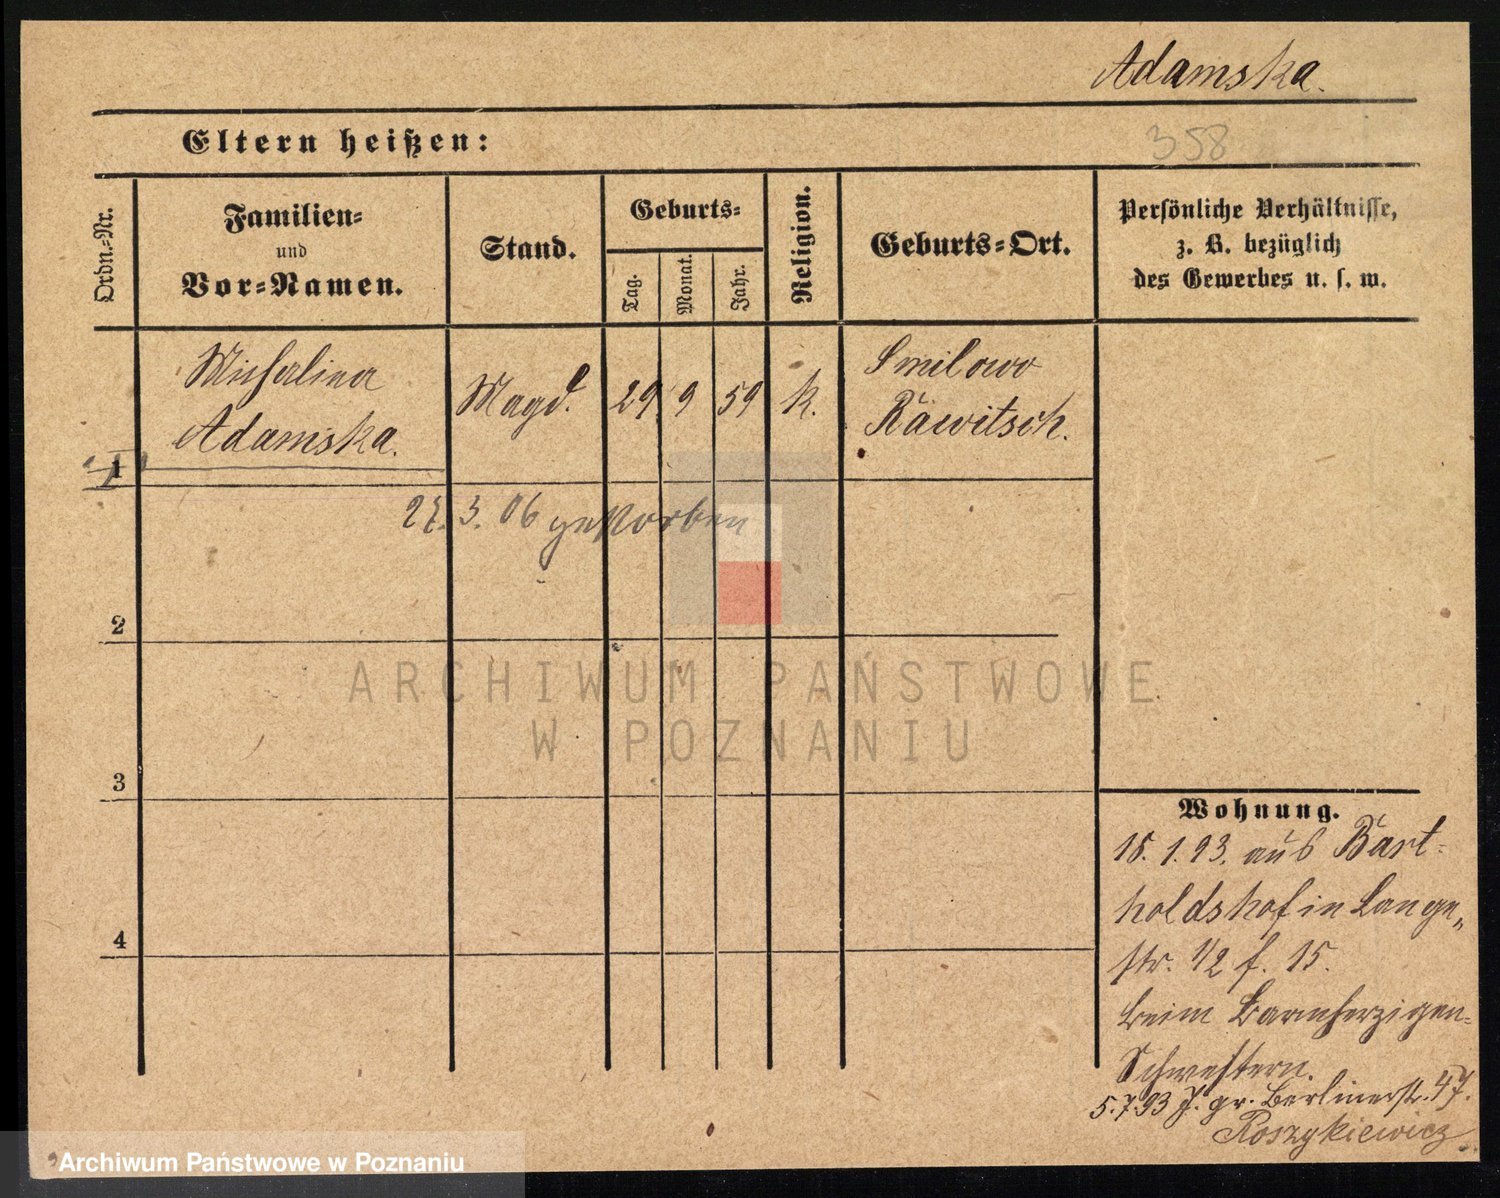 Adamska.
358
Eltern heißen:
Ordn.-Nr.
Familien-
und
Vor-Namen.
Stand.
Geburts-
Tag.
Monat.
Jahr.
Religion.
Geburts-Ort.
Persönliche Verhältnisse,
z. B. bezüglich
des Gewerbes u. s. w.
Michalina
Adamska.
Magd.
29
9
59
k.
Smilowo
Rawitsch.
1
27. 3. 06 gestorben
2
3
4
Wohnung.
18. 1. 93. aus Bart-
holdshof in Lange-
str. 1/2 f. 15.
beim Barmherzigen-
Schwestern.
5.7.93 J. gr. Berlinerstr. 47.
Roszykiewicz
ARCHIWUM PAŃSTWOWE
W POZNANIU
Archiwum Państwowe w Poznaniu